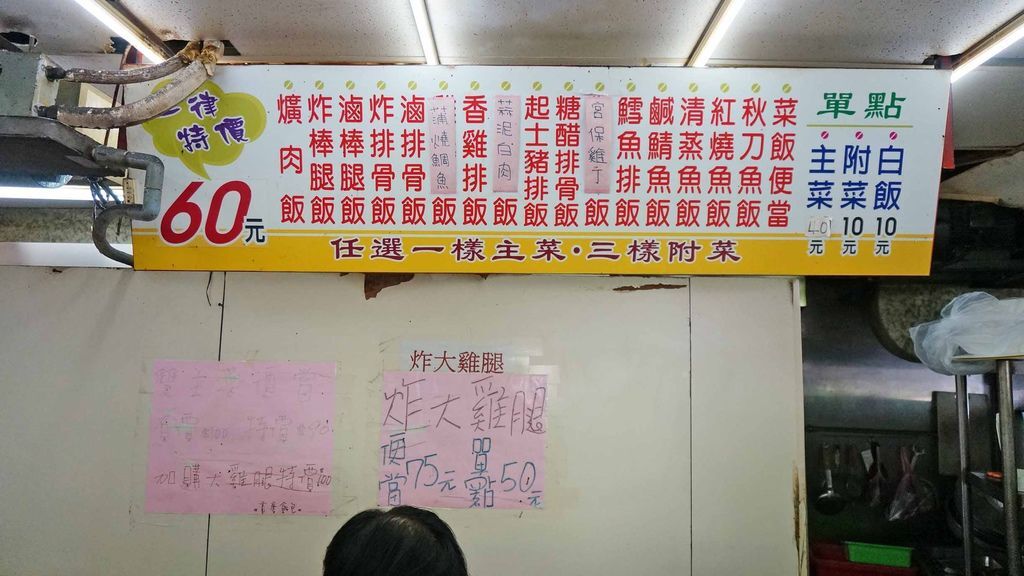 一律
特價
60元
爌肉飯
炸棒腿飯
滷棒腿飯
炸排骨飯
滷排骨飯
蒲燒鯛魚飯
香雞排飯
蒜泥白肉飯
起士豬排飯
糖醋排骨飯
宮保雞丁飯
鱈魚排飯
鹹鯖魚飯
清蒸魚飯
紅燒魚飯
秋刀魚飯
菜飯便當
單點
主菜40元
附菜10元
白飯10元
任選一樣主菜·三樣附菜
雙主菜便當
特價
加購大雞腿特價100
炸大雞腿
炸大雞腿
便當75元
單點50元